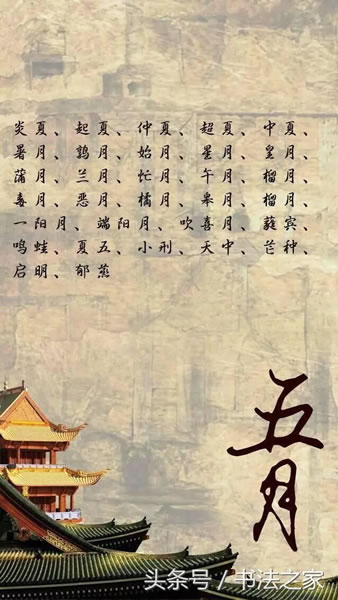 炎夏、起夏、仲夏、超夏、中夏、
暑月、鹑月、始月、星月、皇月、
蒲月、兰月、忙月、午月、榴月、
毒月、恶月、橘月、皋月、榴月、
一阳月、端阳月、吹喜月、蕤宾、
鸣蛙、夏五、小刑、天中、芒种、
启明、郁蒸
五月
头条号 / 书法之家